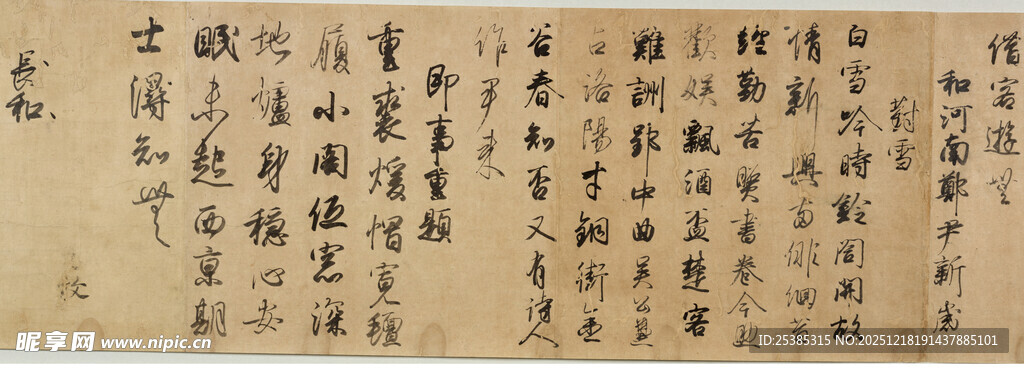 借客遊無
和河南鄭尹新歲
對雪
白雪吟時鈴閣開故
情新興兩俳徊昔
經勤苦照書卷今助
歡娛飄酒盃楚客
難詶郢中曲吳公兼
占洛陽才銅街金
谷春知否又有詩人
作尹來
即事重題
重裘煖帽寬氊
履小閣低窓深
地爐身穩心安
眠未起西京朝
士得知無
長和
昵享网 www.nipic.cn
ID:25385315 NO:20251218191437885101